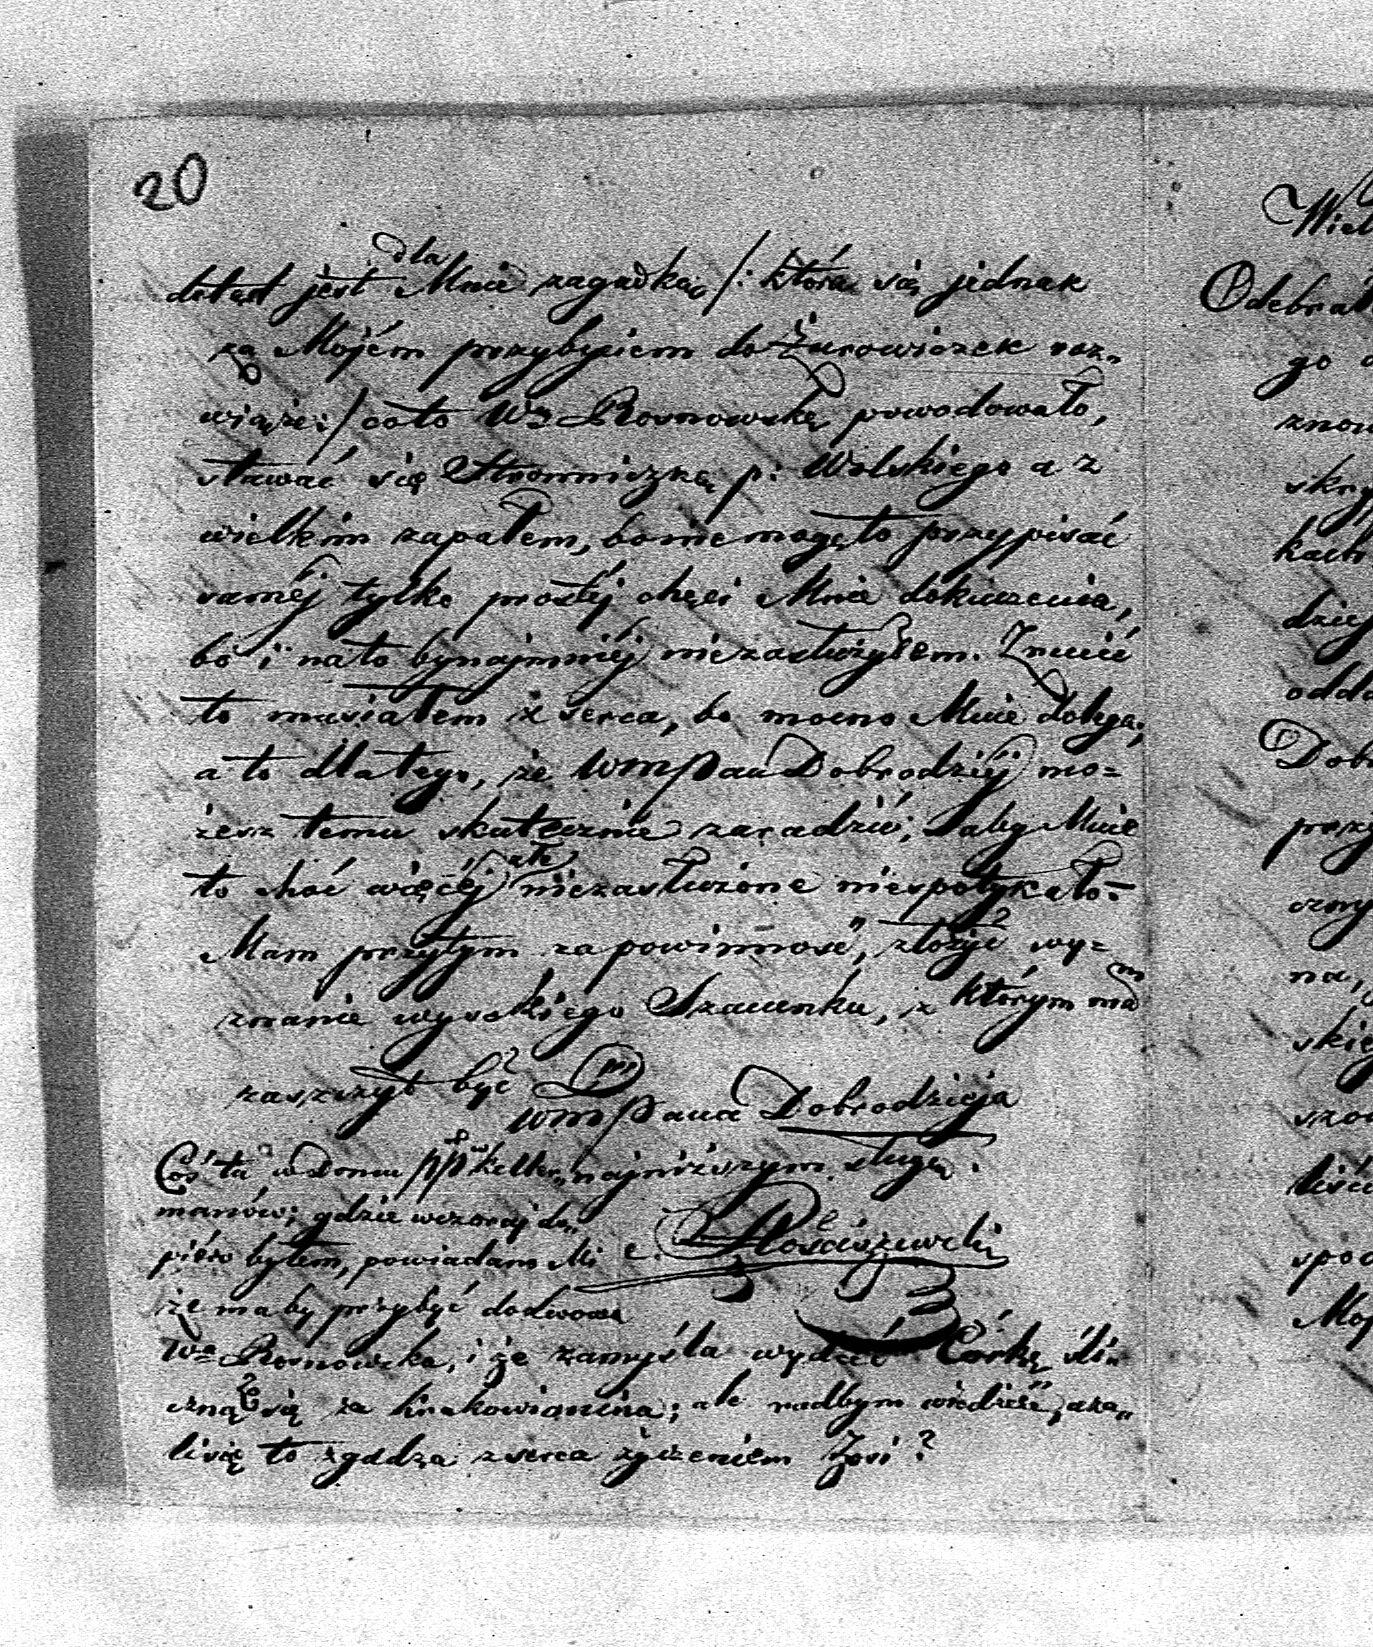 20
dla
dotąd jest Mnie zagadką /: która się jednak
za Mojém przybyciem do Żurowiczek roz„
wiąże :/ co to Wą Rosnowską powodowało,
stawać się Stronniczką p: Wolskiego a z
wielkim zapałem, bo niemogę to przypisać
saméj tylko prostéj chęci Mnie dokuczenia,
bo i nato bynajmniéj niezasłużyłem. Zrzucić
to musiałem z serca, bo mocno Mnie dolega,
a to dla tego, że WMPan Dobrodziéj mo=
żesz temu skutecznie zaradzić, żaby Mnie
złe
to choć więcéj niezasłużone niespotykało.
Mam przytym zapowinność, złożyć wy=
znanie wysokiego Szacunku, z którym mam
zaszczyt być
WMPana Dobrodzieja
najniższym sługą.
Coś ta w Domu PP Keller„
manów, gdzie wczoraj do„
piéro byłem, powiadano Mi
że ma by przybyć do dworu
Wa Rosnowska, i że zamyśla wydać Córkę śli„
czną Zosię za krakowianina; ale radbym wiedzieć, aza„
lisię to zgadza z serca życzeniem Zosi?
Wiel
Odebrał
go
znow
skry
kach
dziej
odda
Dobr
przy
czny
na,
skie
szcz
liści
spod
Moj